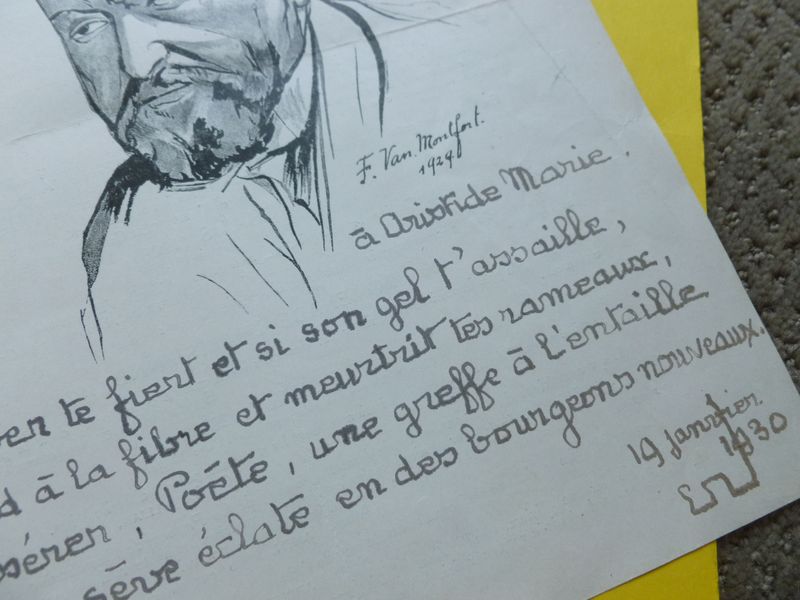 F. Van Montfort.
1929
à Aristide Marie.
te fiert et si son gel t'assaille,
à la fibre et meurtrit tes rameaux,
Poète, une greffe à l'entaille
sève éclate en des bourgeons nouveaux.
19 janvier
1930